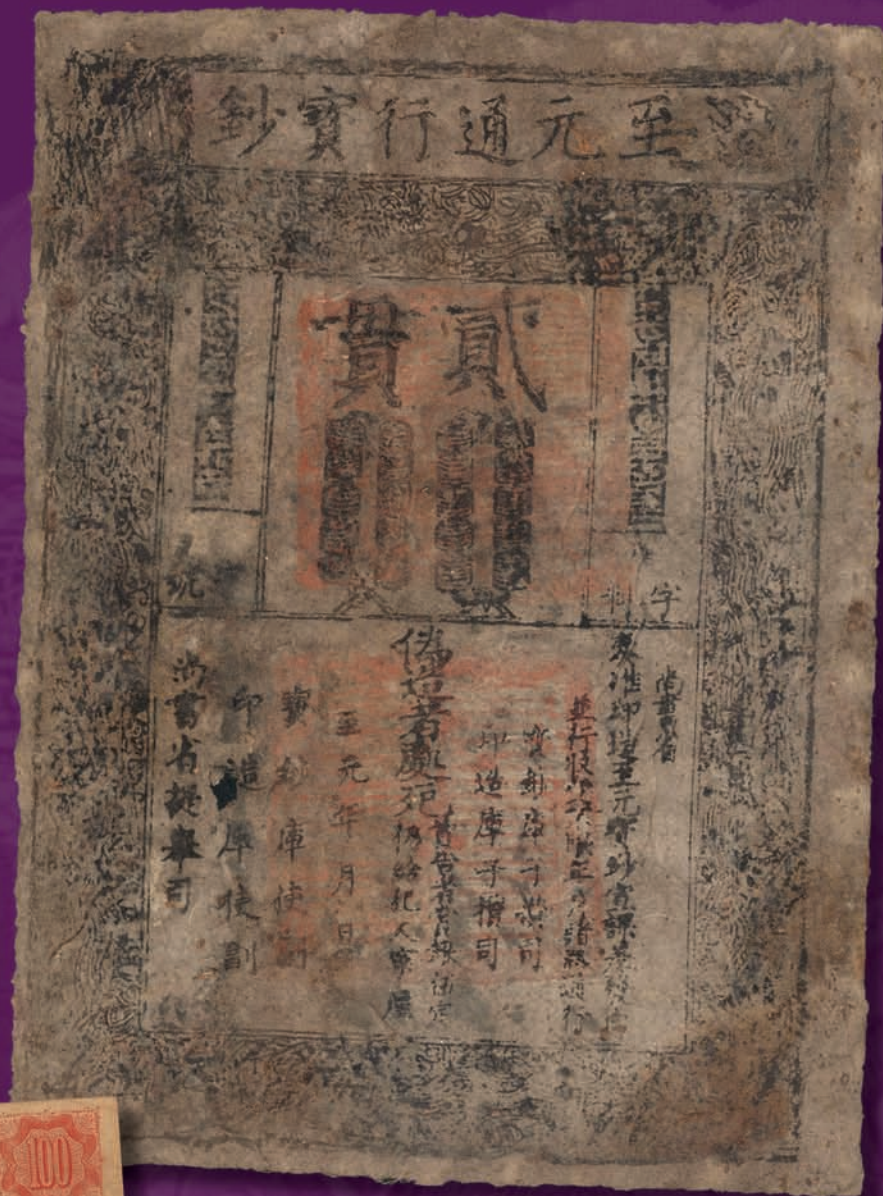 至元通行寶鈔
貳貫
字
料
號
尚書省
奏准印造至元寶鈔宣課差役內
並行收受不限年月諸路通行
寶鈔庫子攢司
印造庫子攢司
偽造者處死
首告者賞銀伍定
仍給犯人家產
至元年月日
寶鈔庫使副
印造庫使副
尚書省提舉司
100